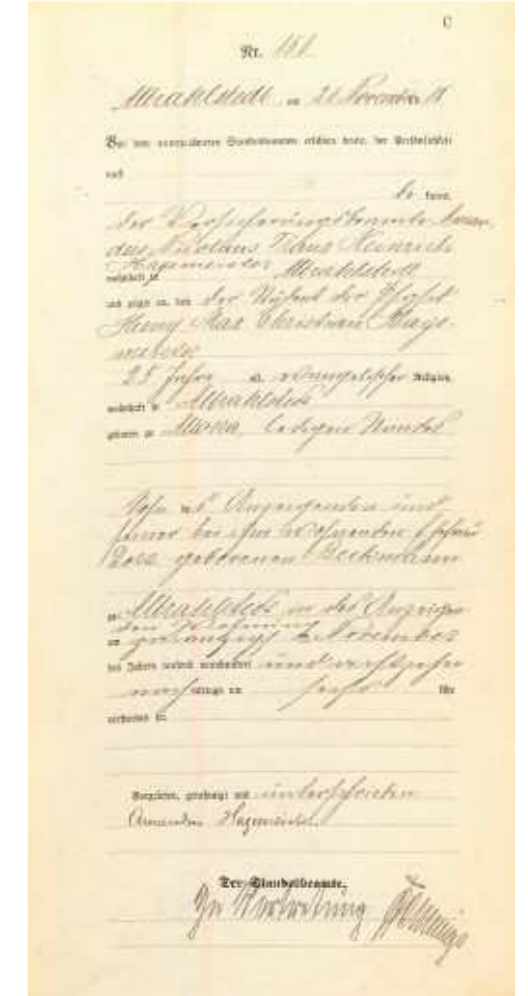 C
Nr. 151
Altrahlstedt, am 21 November 18
Vor dem unterzeichneten Standesbeamten erschien heute, der Persönlichkeit
nach
be kannt,
der Versicherungsbeamte Aman-
dus Nicolaus Franz Heinrich
Hagemeister
wohnhaft in Altrahlstedt
und zeigte an, daß der
Henny Max Christian Hage-
meister
25 Jahre alt, evangelischer Religion,
wohnhaft in Altrahlstedt
geboren zu Altona, ledigen Standes
Sohn des Anzeigenden und
seiner bei ihm wohnenden Ehefrau
Dora geborenen Beckmann
zu Altrahlstedt in des Anzeigen-
den Wohnung
am zwanzigsten November
des Jahres tausend neunhundert und achtzehn
nachmittags um sechs Uhr
verstorben sei.
Vorgelesen, genehmigt und unterschrieben
Amandus Hagemeister.
Der Standesbeamte.
In Vertretung